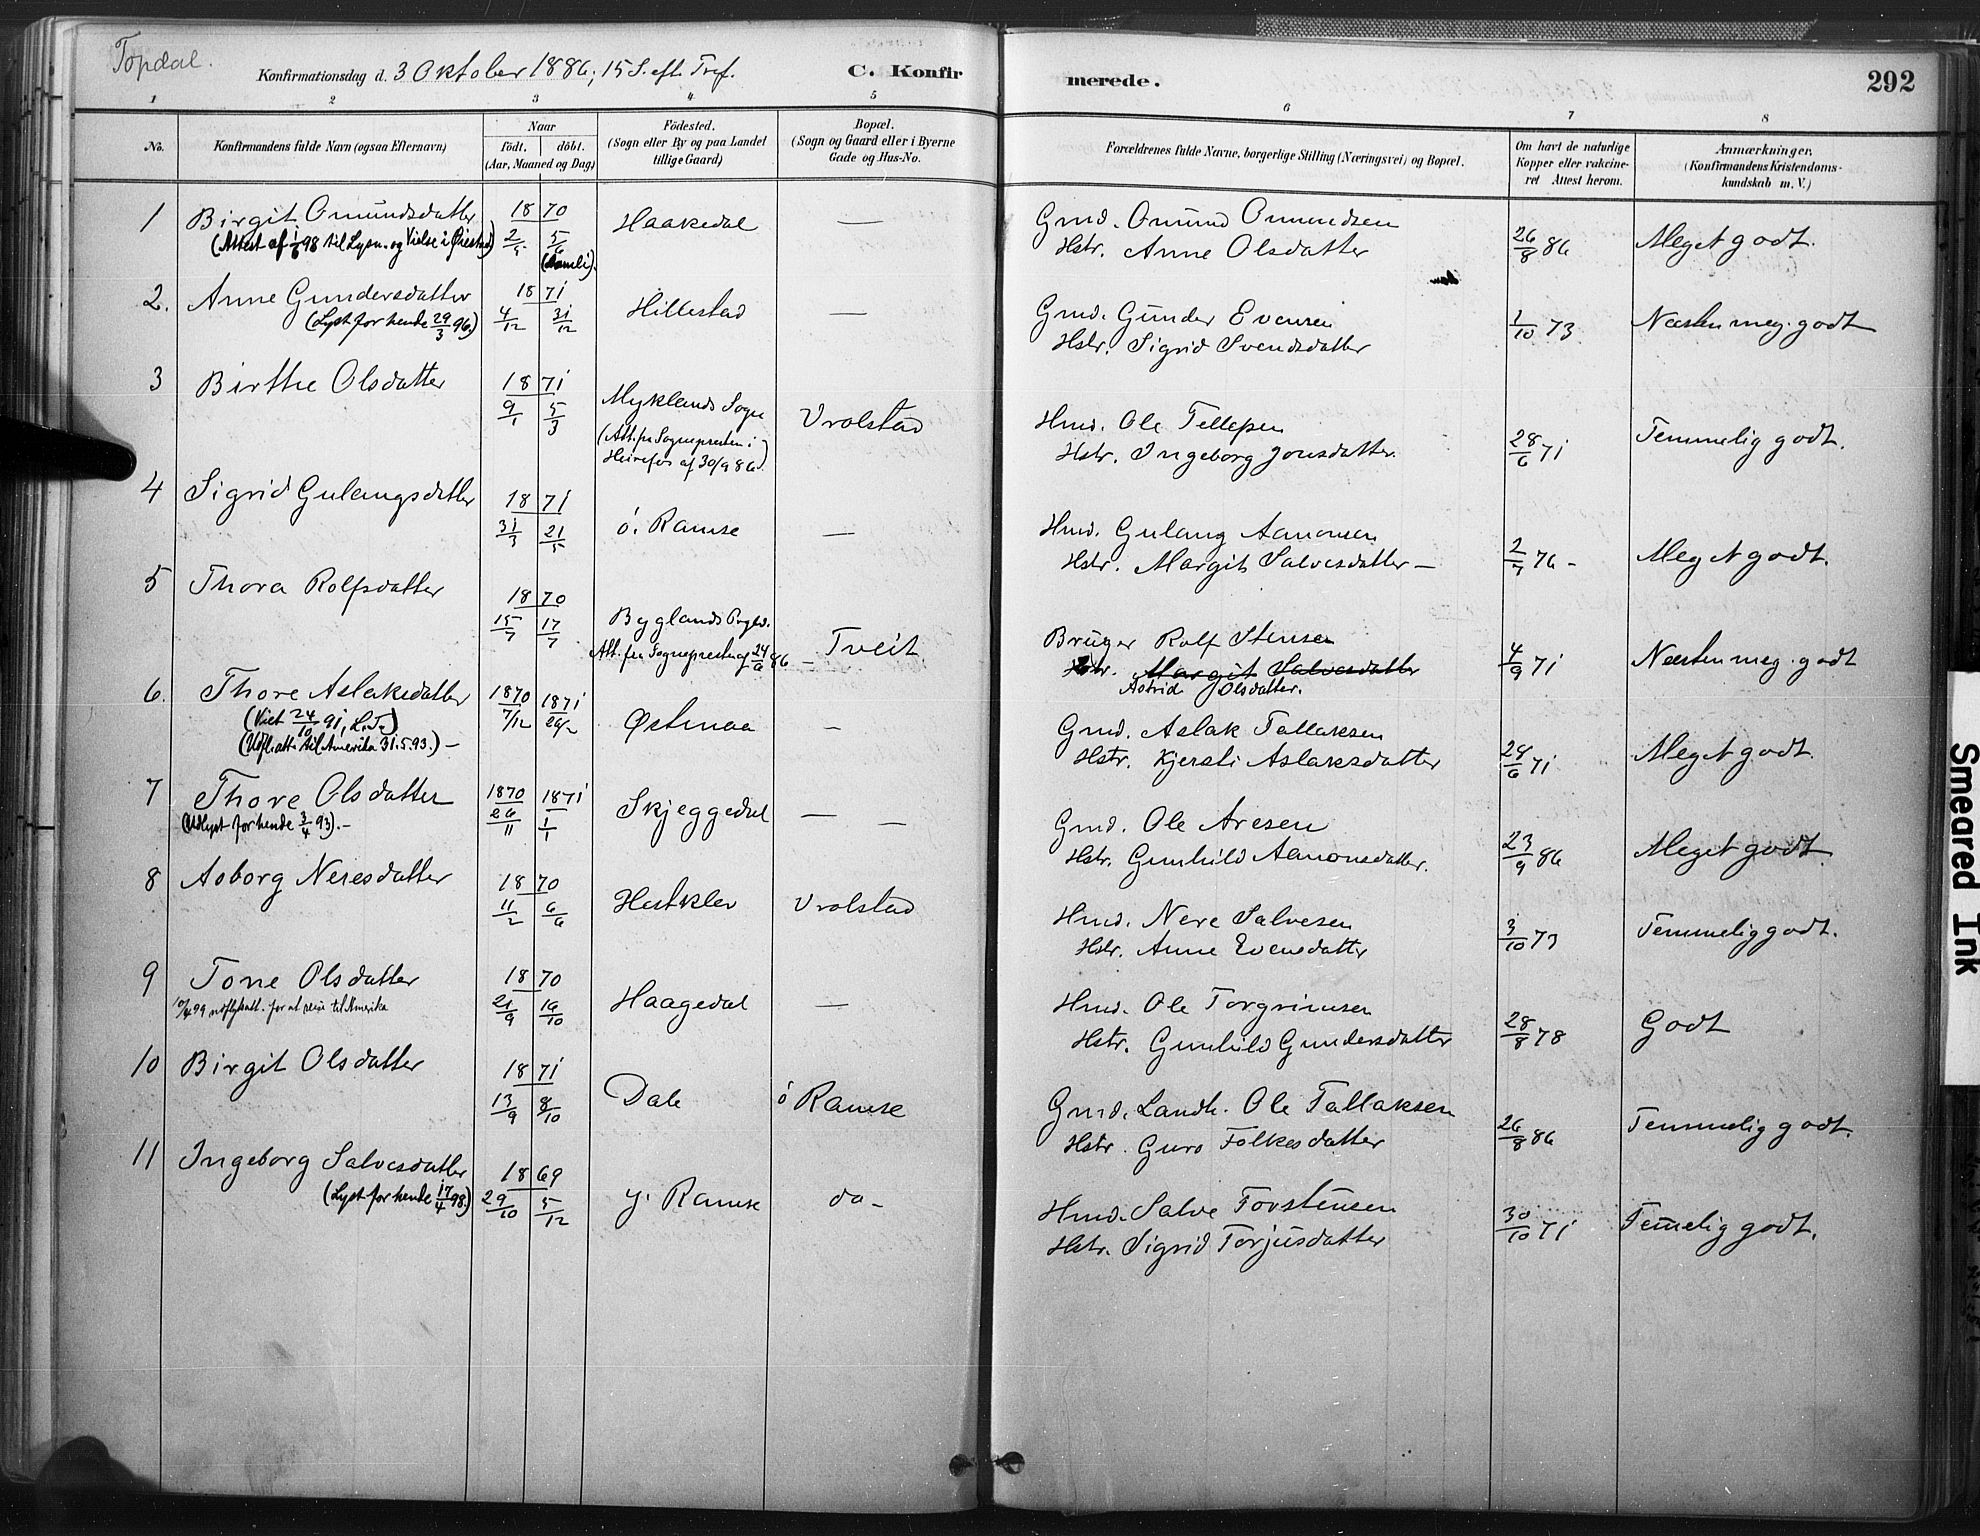 Topdal.
Konfirmationsdag d. 3 Oktober 1886, 15 S. eft. Tref. C. Konfirmerede. 292
1 2 3 4 5 6 7 8
No. Konfirmandens fulde Navn (ogsaa Efternavn) Naar födt. döbt. (Aar, Maaned og Dag) Födested. (Sogn eller By og paa Landet tillige Gaard) Bopæl. (Sogn og Gaard eller i Byerne Gade og Hus-No. Forældrenes fulde Navne, borgerlige Stilling (Næringsvei) og Bopæl. Om havt de naturlige Kopper eller vakcineret Attest herom. Anmærkninger. (Konfirmandens Kristendomskundskab m. V.)
1 Birgit Omundsdatter 18 70 Haakedal — Gmd. Omund Omundsen
(Attest af 1/6 98 til Lysn. og Vielse i Øiestad) 5/6 (Aamli). Hstr. Anne Olsdatter 26/8 86 Meget godt.
2. Anne Gundersdatter 18 71 Hillestad — Gmd. Gunder Evensen
(Lyst for hende 29/3 96.) 4/12 31/12 Hstr. Sigrid Svendsdatter 1/10 73 Næsten meg. godt
3 Birthe Olsdatter 18 71 9/1 5/3 Myklands Sogn Vrolstad Hmd. Ole Tellefsen
(Att. fra Sognepresten i Heirefos af 30/9 86.) Hstr. Ingeborg Jonsdatter. 28/6 71 Temmelig godt.
4 Sigrid Gulangsdatter 18 71 31/3 21/5 ö. Ramse — Hmd. Gulang Aamonsen
Hstr. Margit Salvesdatter — 2/7 76 - Meget godt.
5 Thora Rolfsdatter 18 70 15/7 17/7 Byglands Prgld. Tveit Bruger Rolf Stensen
Att. fra Sognepresten af 24/9 86 — Hstr. Margit Salvesdatter 4/9 71 Næsten meg. godt
Astrid Olsdatter.
6. Thore Aslaksdatter 1870 7/12 1871 26/2 Østmaa — Gmd. Aslak Tallaksen
(Viet 24/10 91, L.T.) Hstr. Kjersti Aslaksdatter 28/6 71 Meget godt.
(Udfl. att. til Amerika 31.5.93.) —
7 Thore Olsdatter 1870 26/11 1871 1/1 Skjeggedal — — Gmd. Ole Aresen
(Udlyst for hende 3/4 93). — Hstr. Gunhild Aamonsdatter. 23/9 86 Meget godt
8 Asborg Neresdatter 18 70 11/2 6/6 Hestklev Vrolstad Hmd. Nere Salvesen
Hstr. Anne Evensdatter 3/10 73 Temmelig godt.
9 Tone Olsdatter 18 70 21/9 19/10 Haagedal — Hmd. Ole Torgrimsen
10/4 99 udflytsatt. for at reise til Amerika Hstr. Gunhild Gundersdatter 28/8 78 Godt
10 Birgit Olsdatter 18 71 13/9 8/10 Dale ö Ramse Gmd. Landh. Ole Tallaksen
Hstr. Guro Folkesdatter 26/8 86 Temmelig godt.
11 Ingeborg Salvesdatter 18 69 29/10 5/12 y. Ramse do - Hmd. Salve Torstensen
(Lyst for hende 17/4 98.) Hstr. Sigrid Torjusdatter 30/10 71 Temelig godt.
Smeared Ink